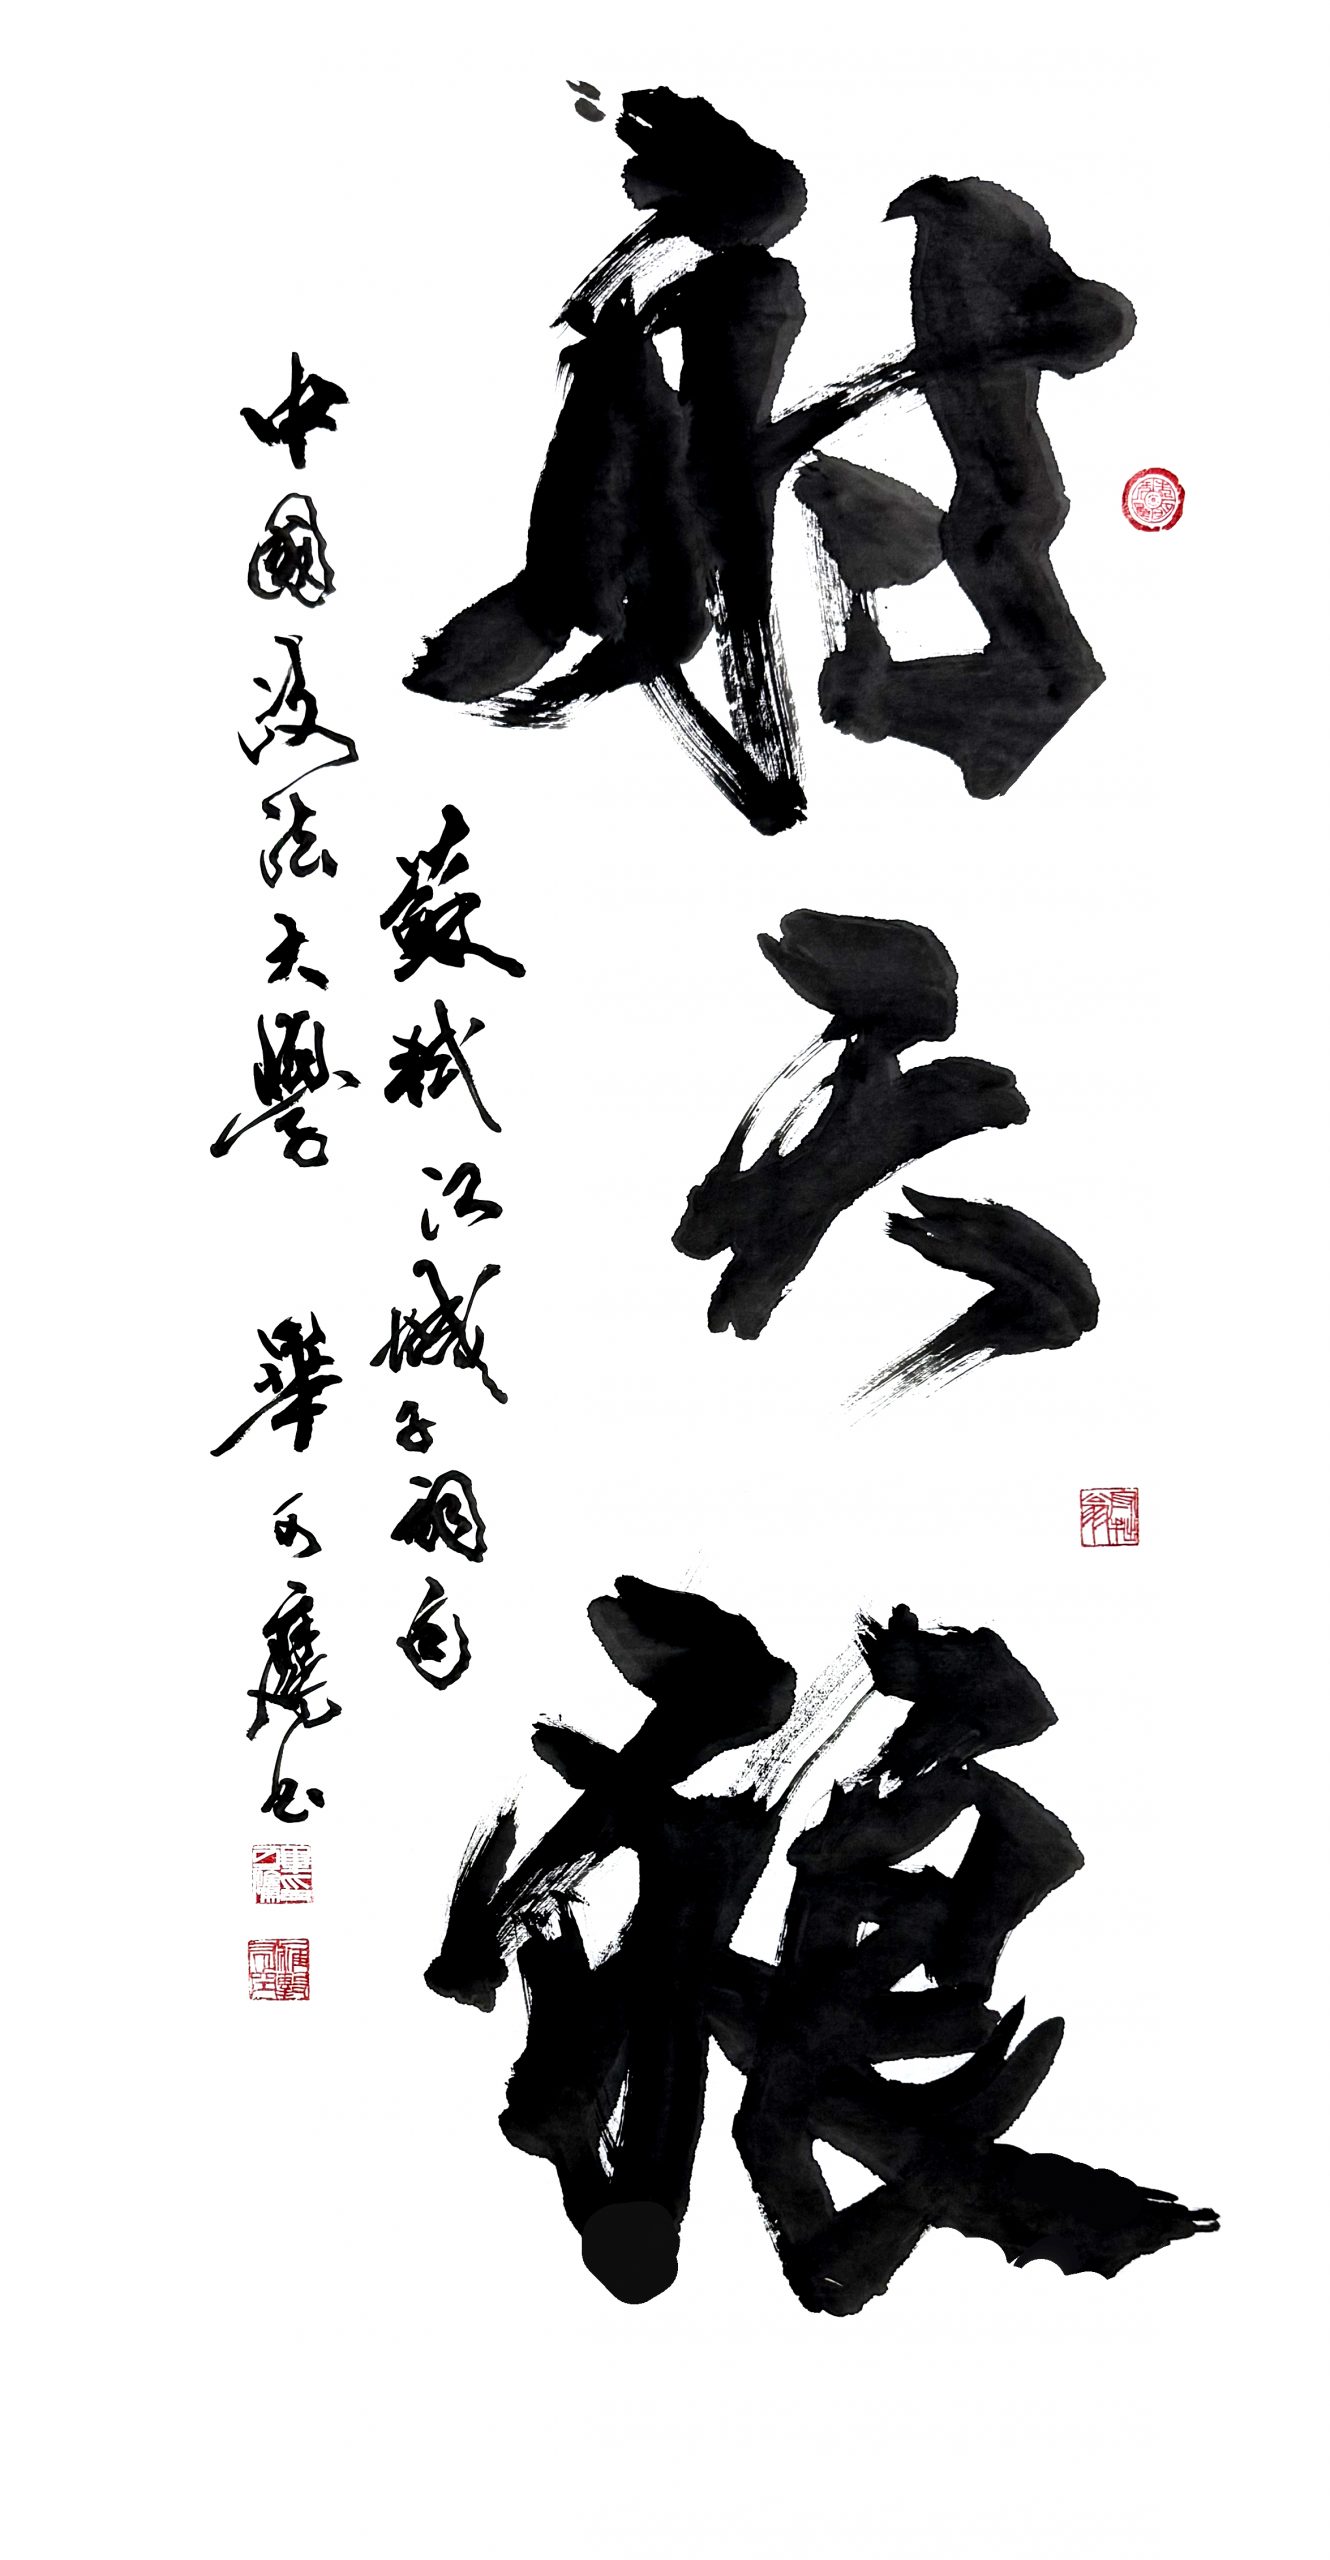 射天狼
蘇軾江城子詞句
中國政法大學 畢
書